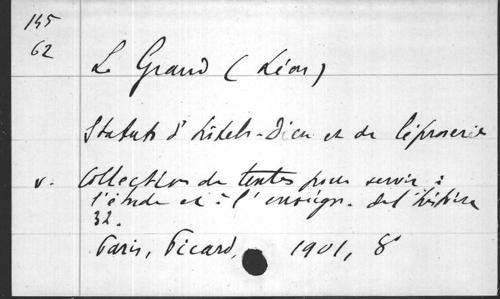 145
62
Le Grand (Léon)
Statuts d'hôtels-Dieu et de léproseries
v. Collection de textes pour servir à
l'étude et à l'enseign. de l'histoire
32.
Paris, Picard, 1901, 8°